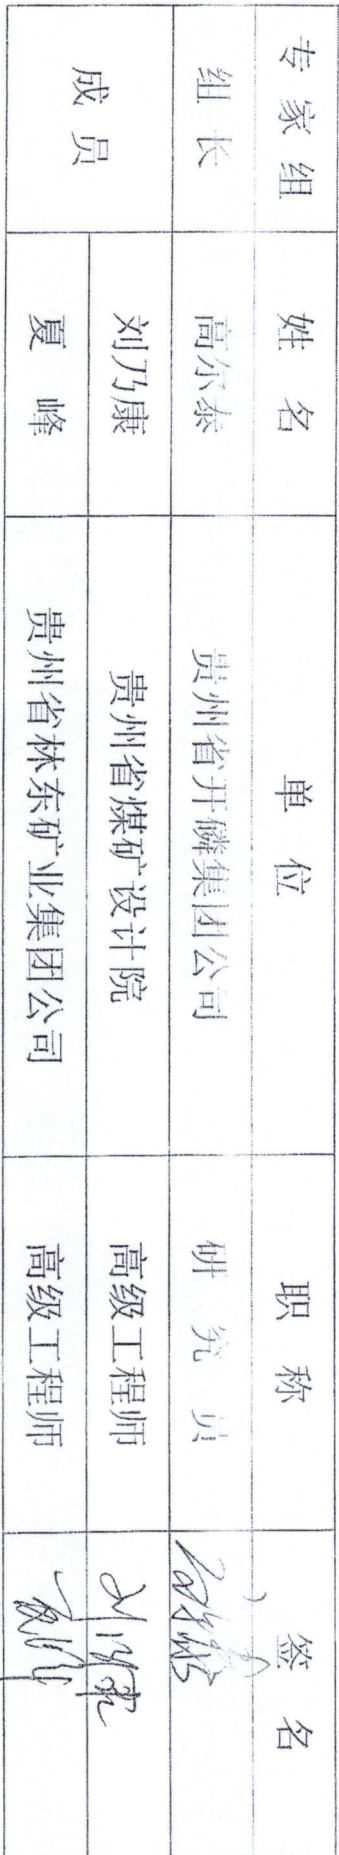 专家组 姓名 单位 职称 签名
组长 高尔泰 贵州省开磷集团公司 研究员
成员 刘乃康 贵州省煤矿设计院 高级工程师 刘乃康
夏峰 贵州省林东矿业集团公司 高级工程师 夏峰